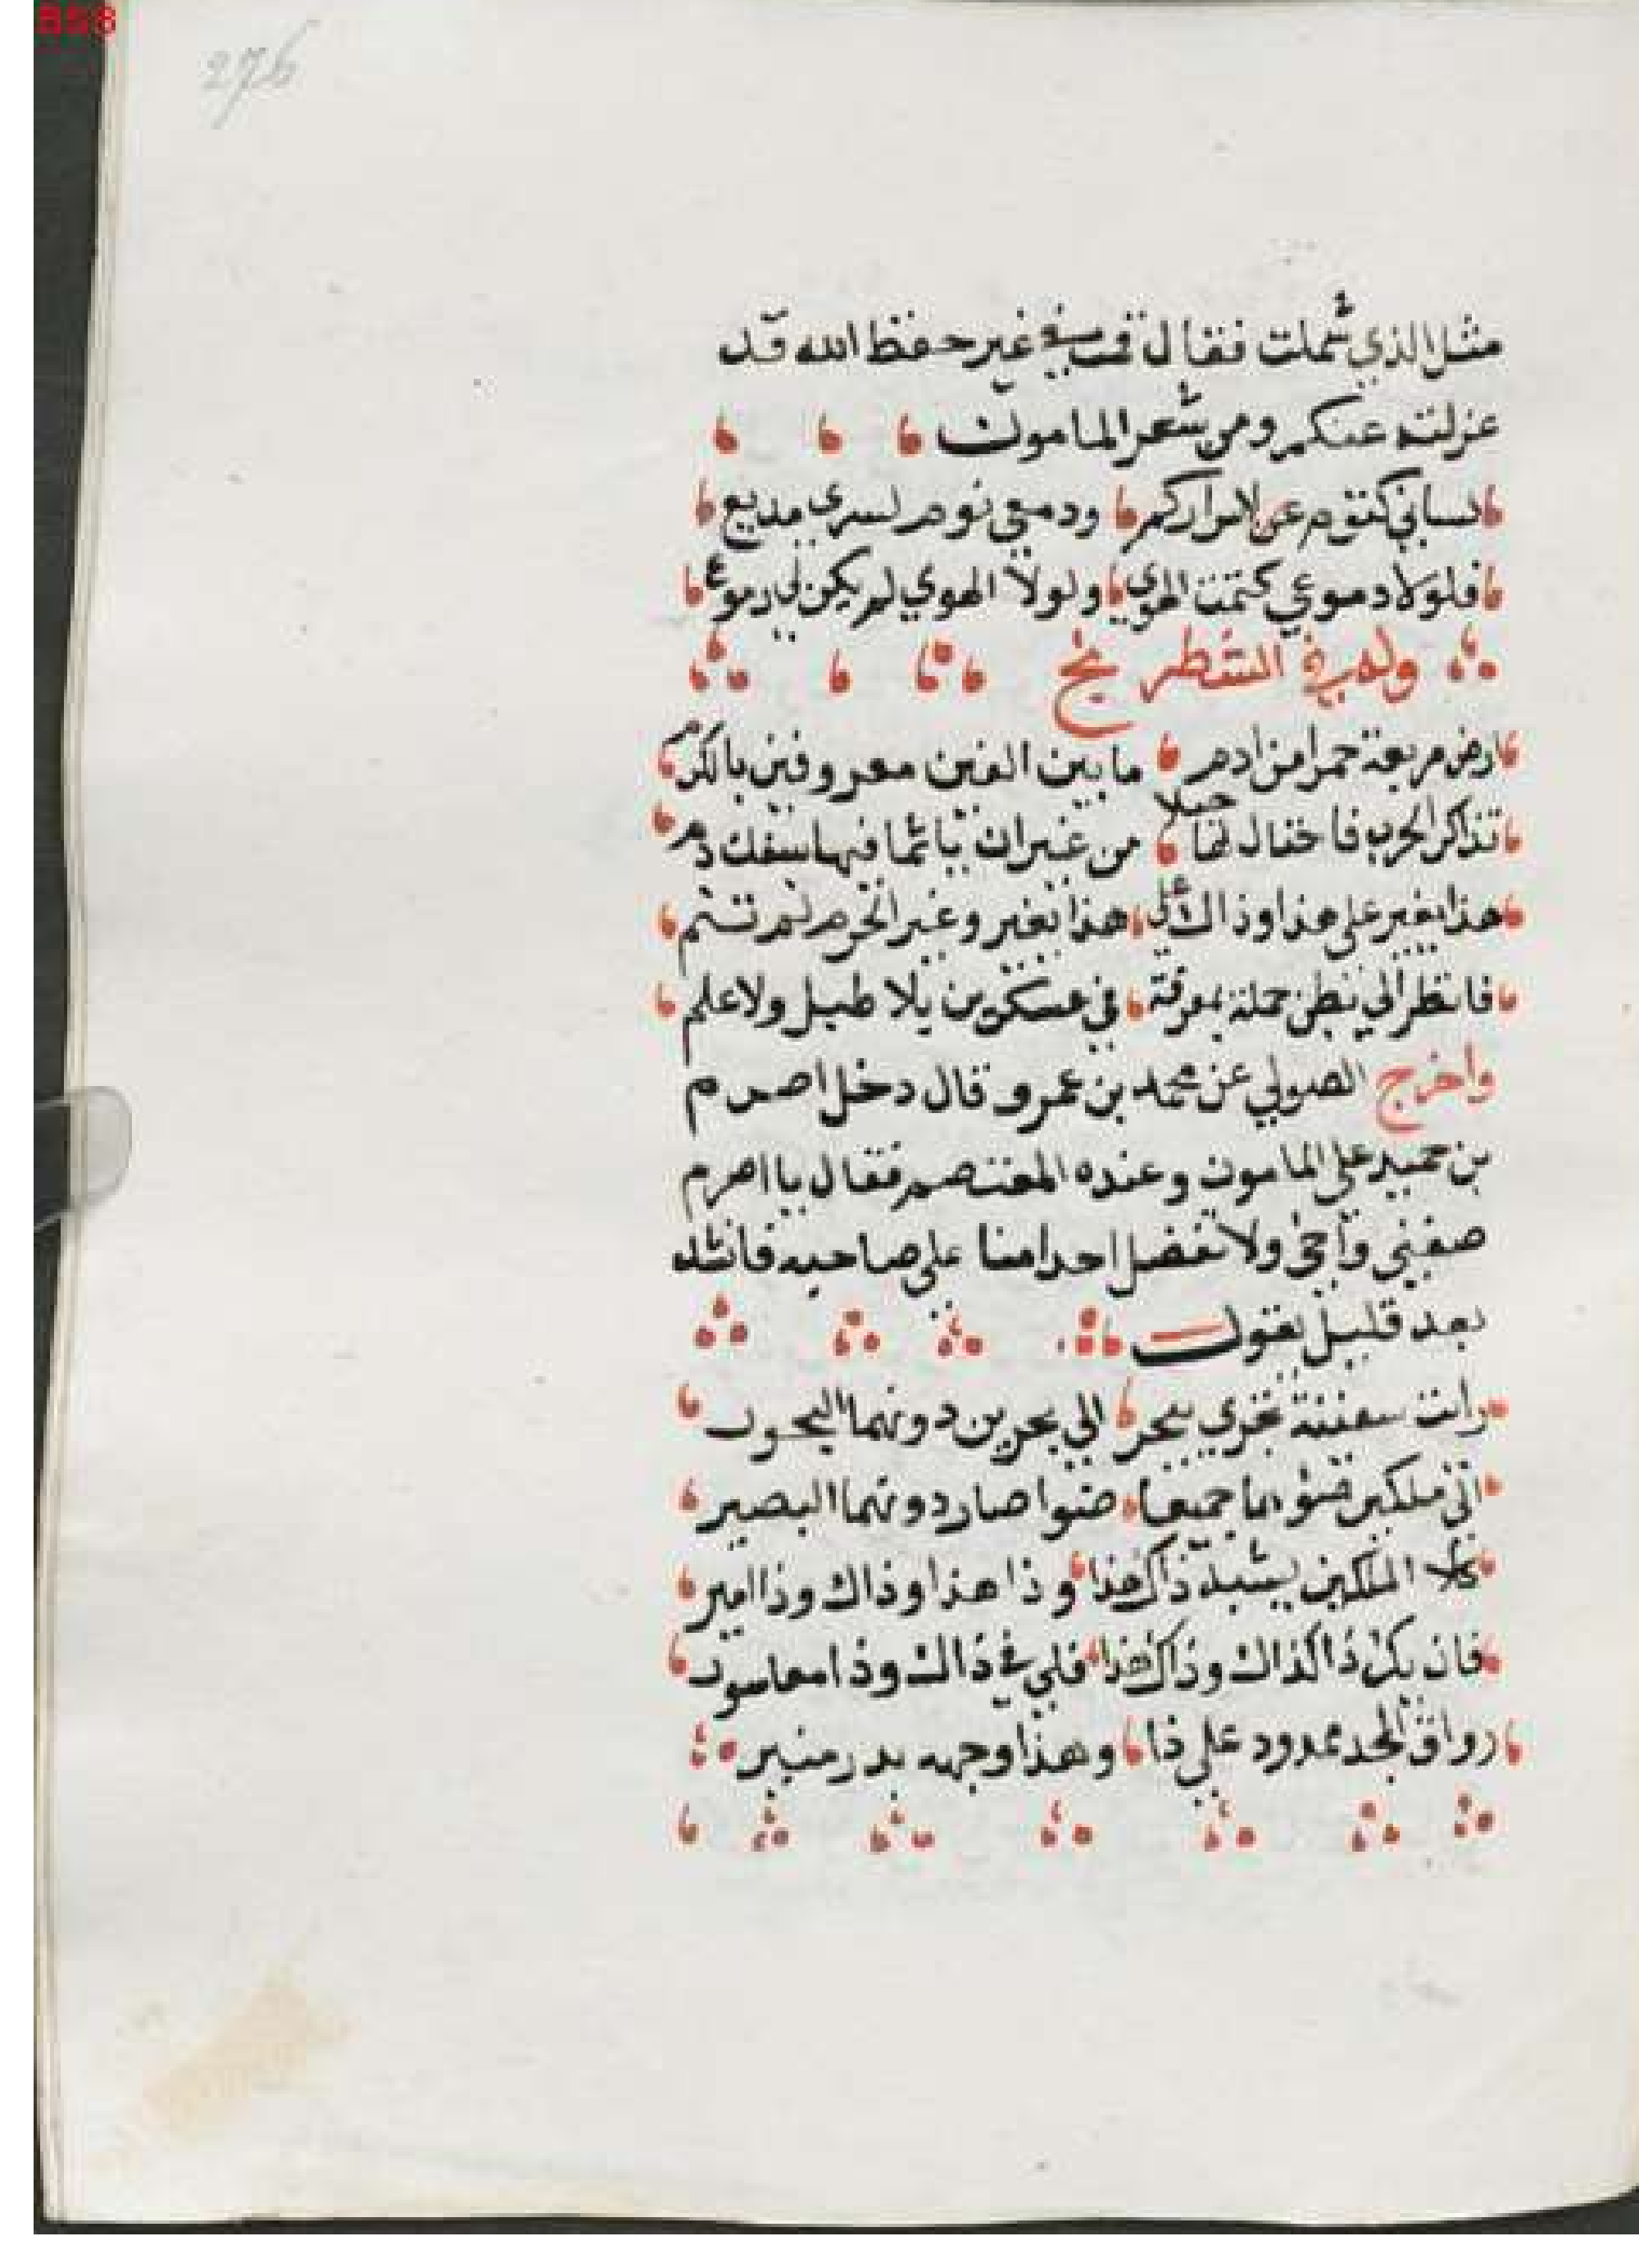 276
مثل الذي شملت فقال قم في غير حفظ الله قد
عزلته عنكم ومن شعر المامون
لساني كتوم لاسراركم ودمعي نوم لسري مديع
فلولا دموعي كتمت الهوي ولولا الهوي لم يكن لي دموع
وله في الشطرنج
ارض مربعة حمرا من ادم ما بين الفين معروفين بالكرم
تذاكر الحرب فاحتفال لها حيلا من غيران ياثما فيها سفك دم
هذا يغير علي هذا وذاك علي هذا يغير وعير الحرم لم تنم
فانظر الي بطن حملة بمعرفة في عسكرين بلا طبل ولا علم
واخرج الصولي عن محمد بن عمرو قال دخل اصرم
بن حميد علي المامون وعنده المعتصم فقال يا اصرم
صفني واخي ولا تفضل احدا منا علي صاحبه فانشد
بعد قليل يقول
رايت سفينة تجري ببحر الي بحرين دونهما البحور
الي ملكين ضوهما جميعا ضوا صار دونهما البصير
كلا الملكين يشبه ذاك هذا وذا هذا وذاك وذا امير
فان يكن ذا كذاك وذاك هذا فلي في ذاك وذا معا سرور
رواق المجد ممدود علي ذا وهذا وجهه بدر منير